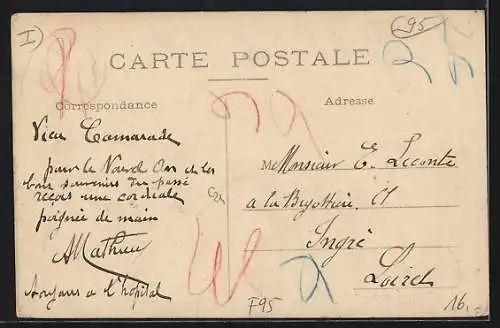 I
95
CARTE POSTALE
Correspondance
Adresse
Vieu Camarade
pour le Nouvel An de les
bons souvenirs du passé
reçois une cordiale
poignée de main
AMathieu
Toujours a l'hôpital
Monsieur E. Leconte
a la
Ingré
Loiret
F95
16,-